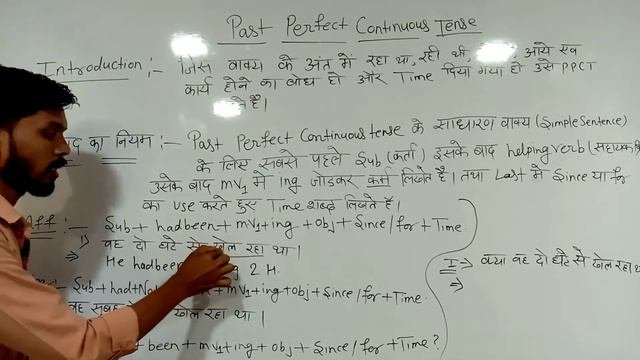 Past Perfect Continuous Tense
Introduction :- जिस वाक्य के अंत में रहा था, रही थी, आये एव
कार्य होने का बोध हो और Time दिया गया हो उसे PPCT
हैं।
का नियम :- Past Perfect Continuous tense के साधारण वाक्य (Simple Sentence)
के लिए सबसे पहले Sub (कर्ता) इसके बाद helping verb (सहायक
उसके बाद mv1 में ing जोडकर कर्म लिखते हैं। तथा Last में Since या for
का use करते हुए Time शब्द लिखते हैं।
Aff :- Sub + had been + mv1 + ing + obj + Since / for + Time
वह दो घंटे से खेल रहा था।
⇒ He had been 2 H.
I → क्या वह दो घंटे से खेल रहा था
⇒
Sub + had + Not + mv1 + ing + obj + Since / for + Time
वह सुबह खेल रहा था।
+ been + mv1 + ing + obj + Since / for + Time?